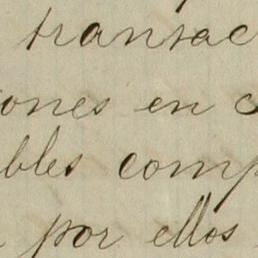 transac
ones en c
bles comp
por ellos